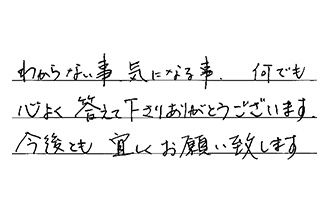 わからない事、気になる事、何でも
心よく答えて下さりありがとうございます。
今後とも宜しくお願い致します